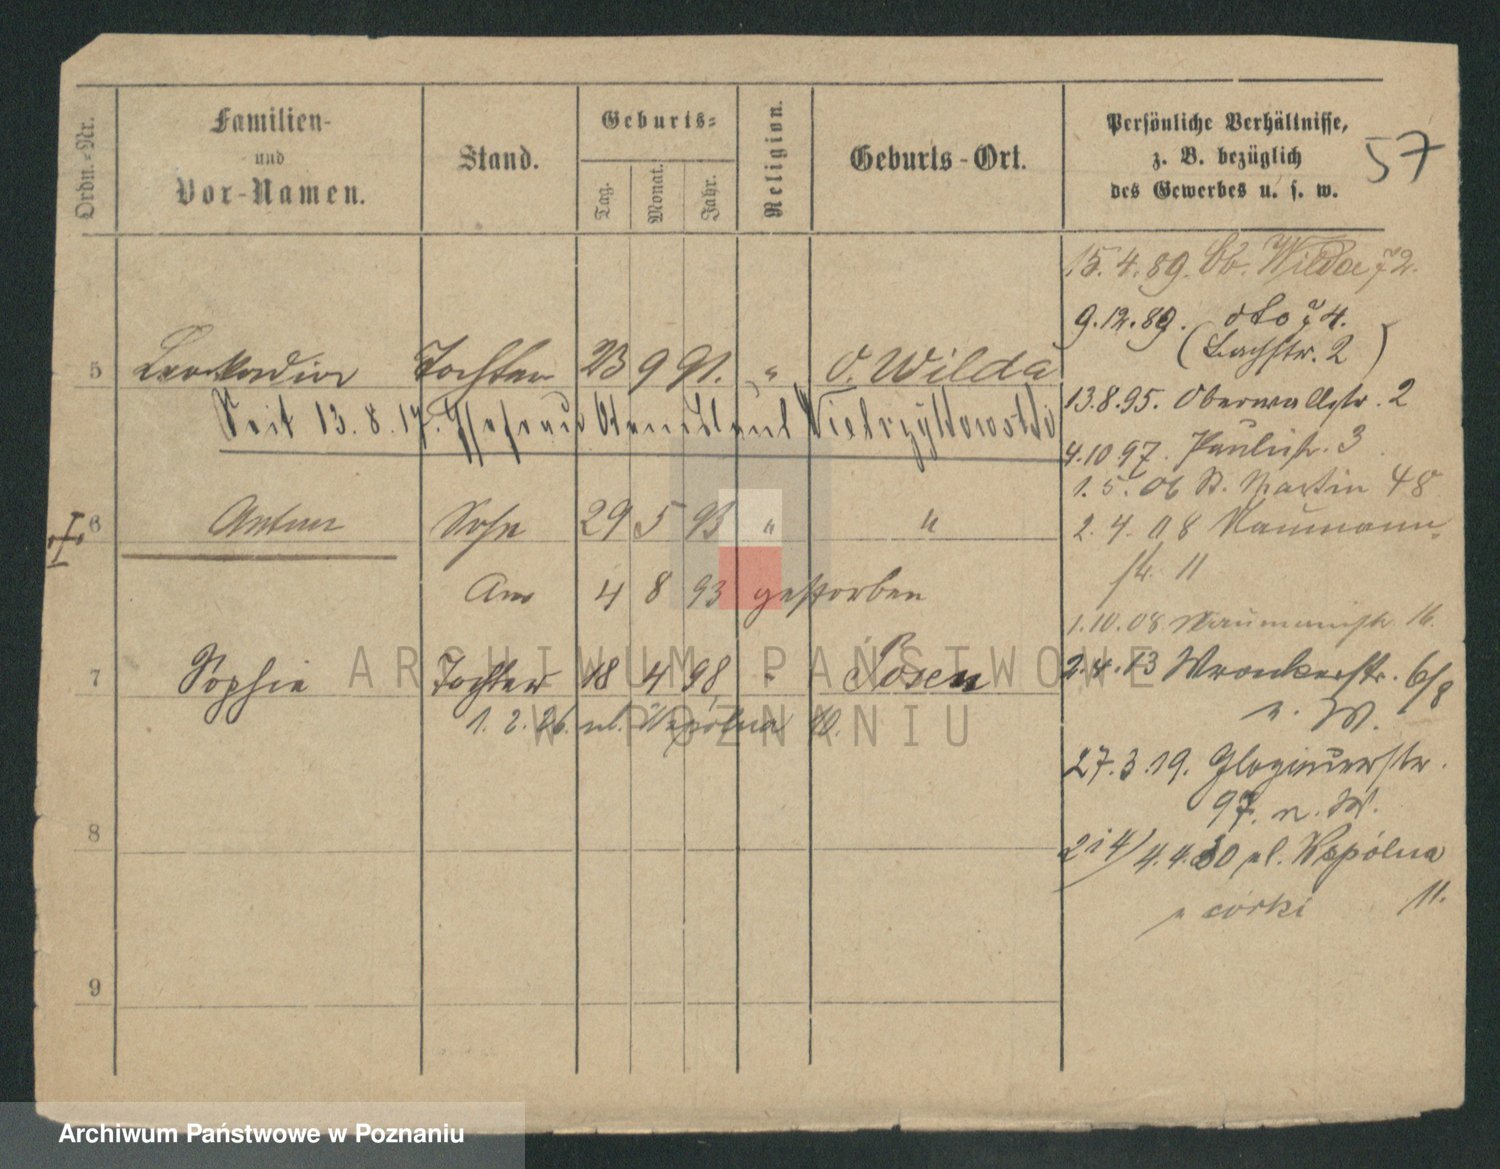 57
Ordn.-Nr.
Familien-
und
Vor-Namen.
Stand.
Geburts-
Tag.
Monat.
Jahr.
Religion.
Geburts-Ort.
Persönliche Verhältnisse,
z. B. bezüglich
des Gewerbes u. s. w.
15.4.89. Ob. Wilda 72.
9.12.89. dto 74.
(Bachstr. 2)
5 Leokadia Tochter 23 9 91. " O. Wilda
13.8.95. Oberwallstr. 2
Seit 13.8.17. Ehefrau
4.10 97. Paulistr. 3
1.5.06 St. Martin 48
6 Anton Sohn 29 5 93 " "
2.4.08 Naumann-
str. 11
Am 4 8 93 gestorben
1.10.08. Naumannstr. 16.
7 Sophie Tochter 18 4 98 " Posen
2.4.13 Wronkerstr. 6/8
n. W.
1.2.26. ul. Wspólna 10.
27.3.19. Glogauerstr.
97. n. W.
8
2 i 4/ 4.4.30 ul. Wspólna
11.
u córki
9
ARCHIWUM PAŃSTWOWE
W POZNANIU
Archiwum Państwowe w Poznaniu